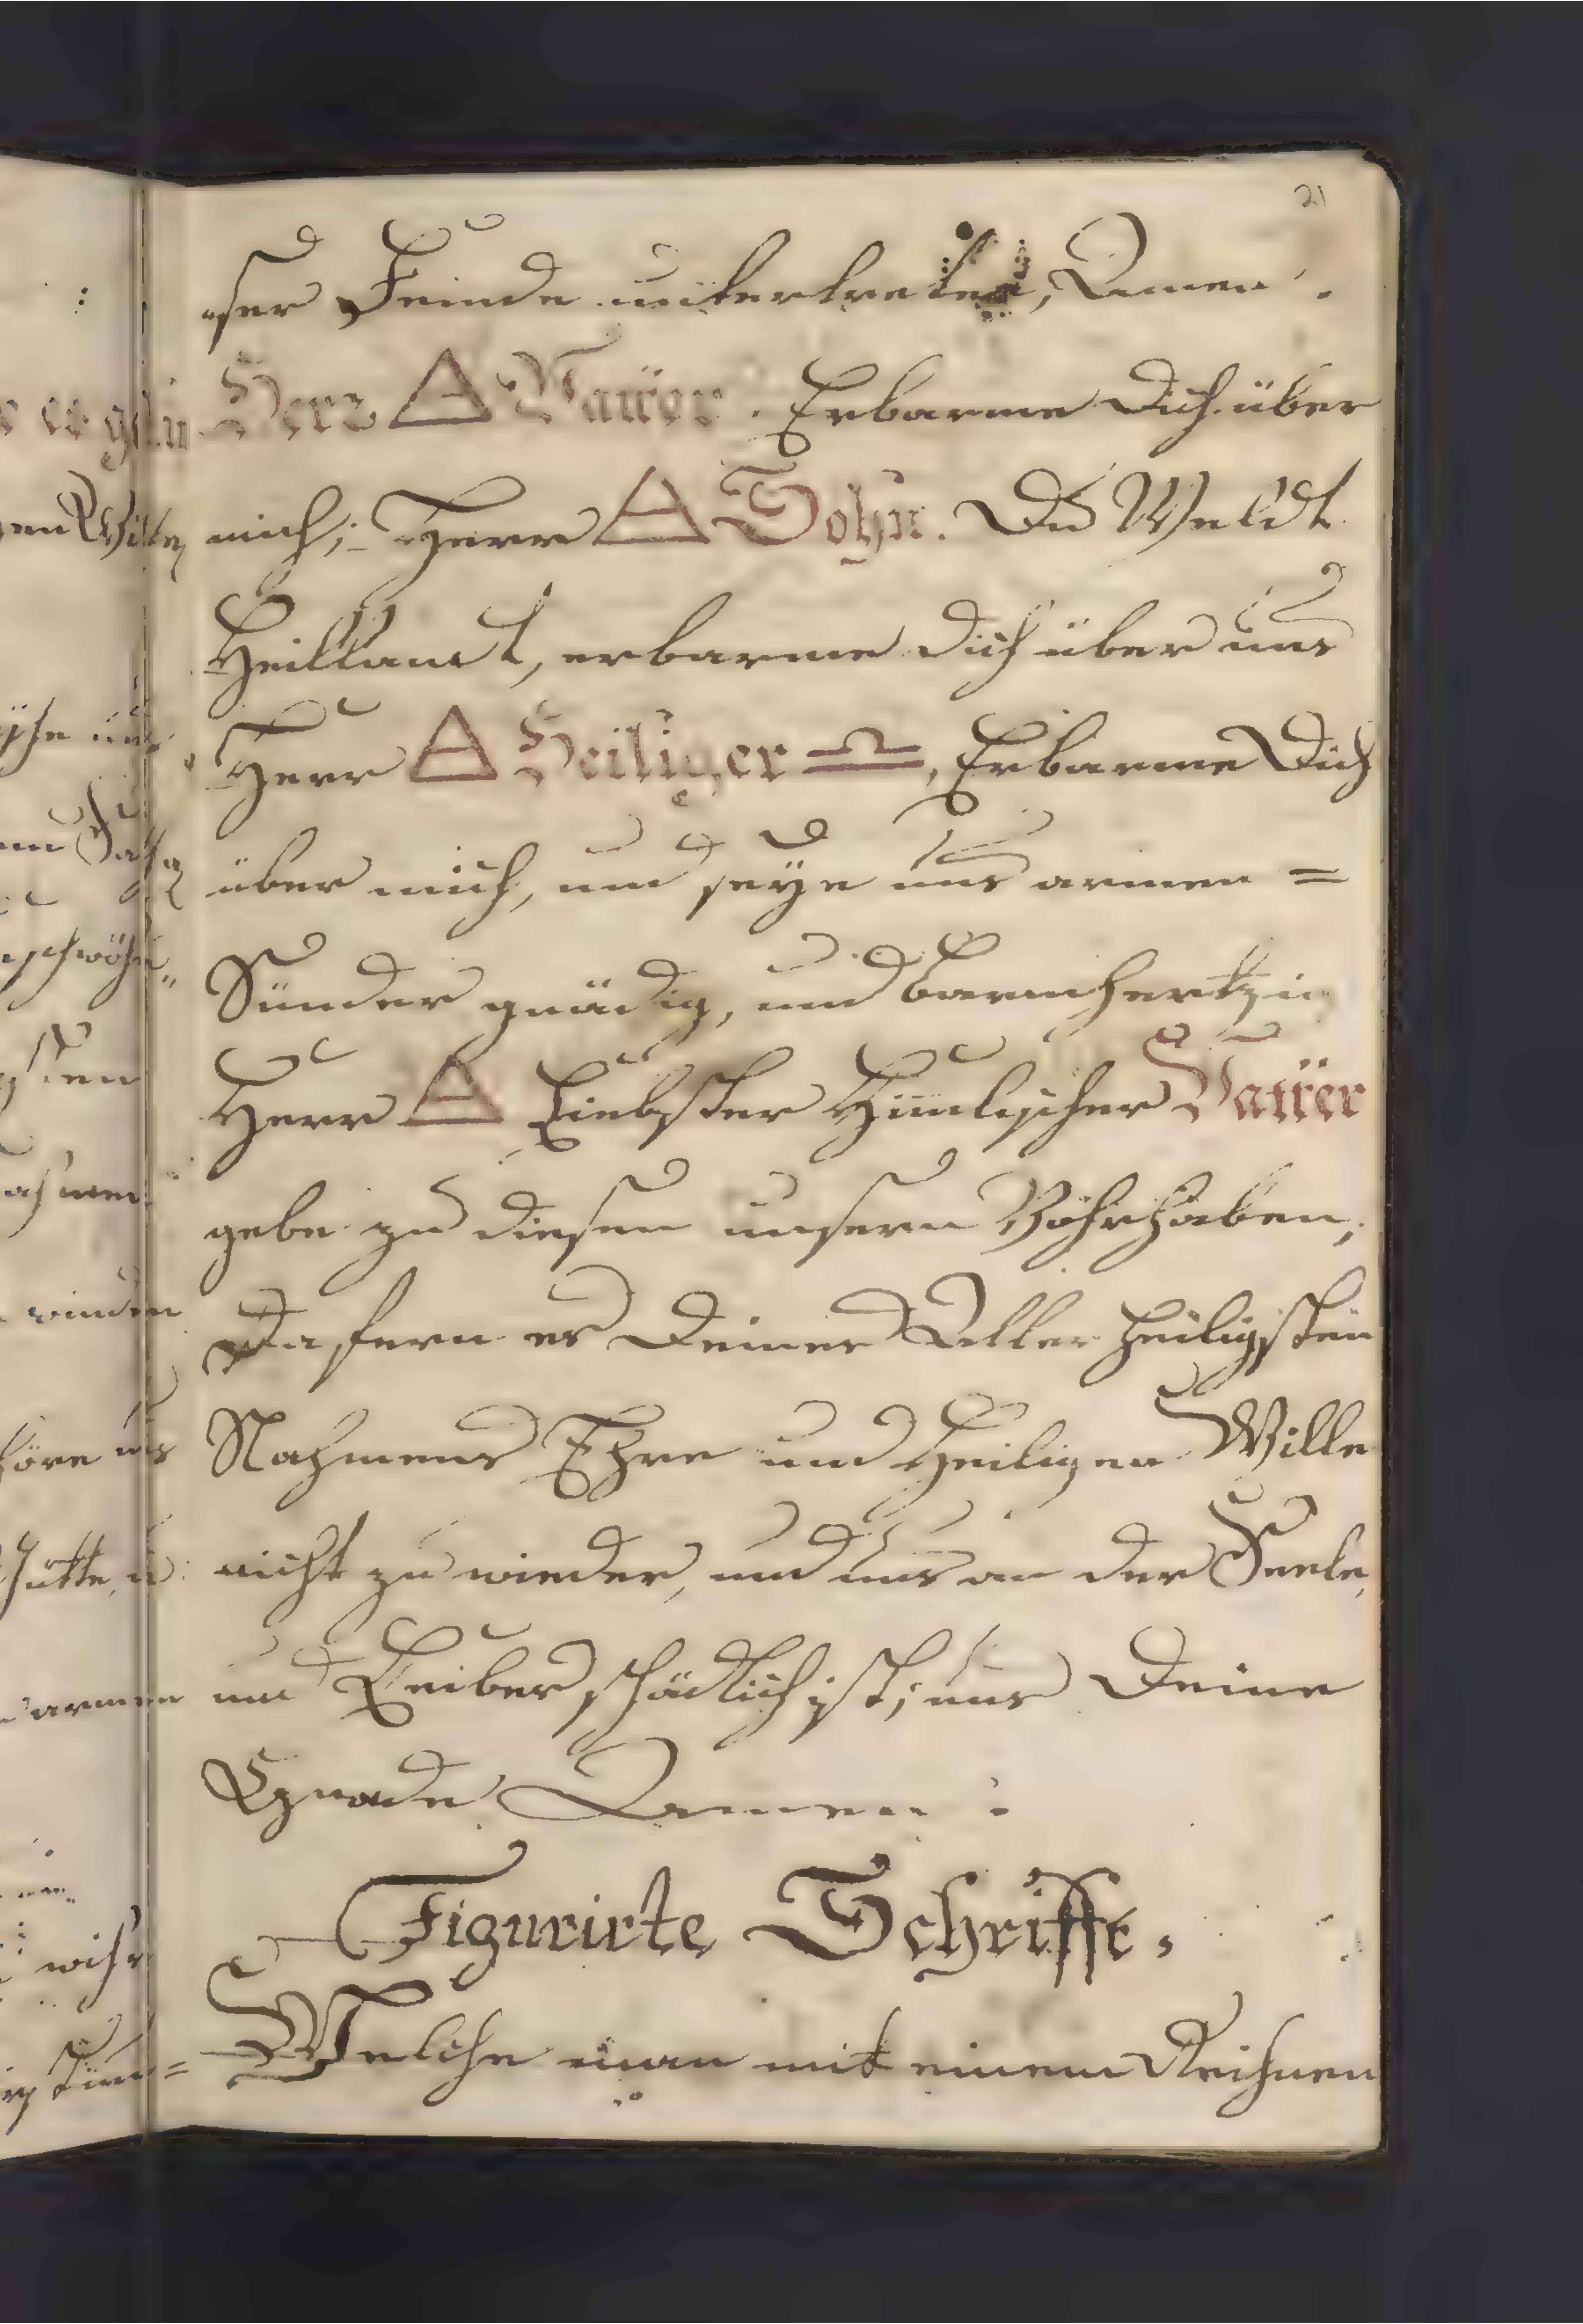 21
"ser Feinde untertreten, Amen.
Herr 🜁 Vatter. Erbarme dich über
mich; Herr 🜁 Sohn. Du Weldt
Heillandt, erbarme dich über uns
Herr 🜁 Heiliger ♎, Erbarme Dich
über mich, und seye uns armen =
Sünder gnädig, und barmhertzig
Herr 🜁 Liebster Himlischer Vatter
gebe zu diesen unsern Vohrhaben,
Dafern es Deines Aller heiligsten
Nahmens Ehre und Heiligen Wille
nicht zu wieder, und uns an der Seele,
und Leiber schädlich ist; uns Deine
Gnade Amen:
Figurirte Schrifft.
Welche man mit einem Reihnen